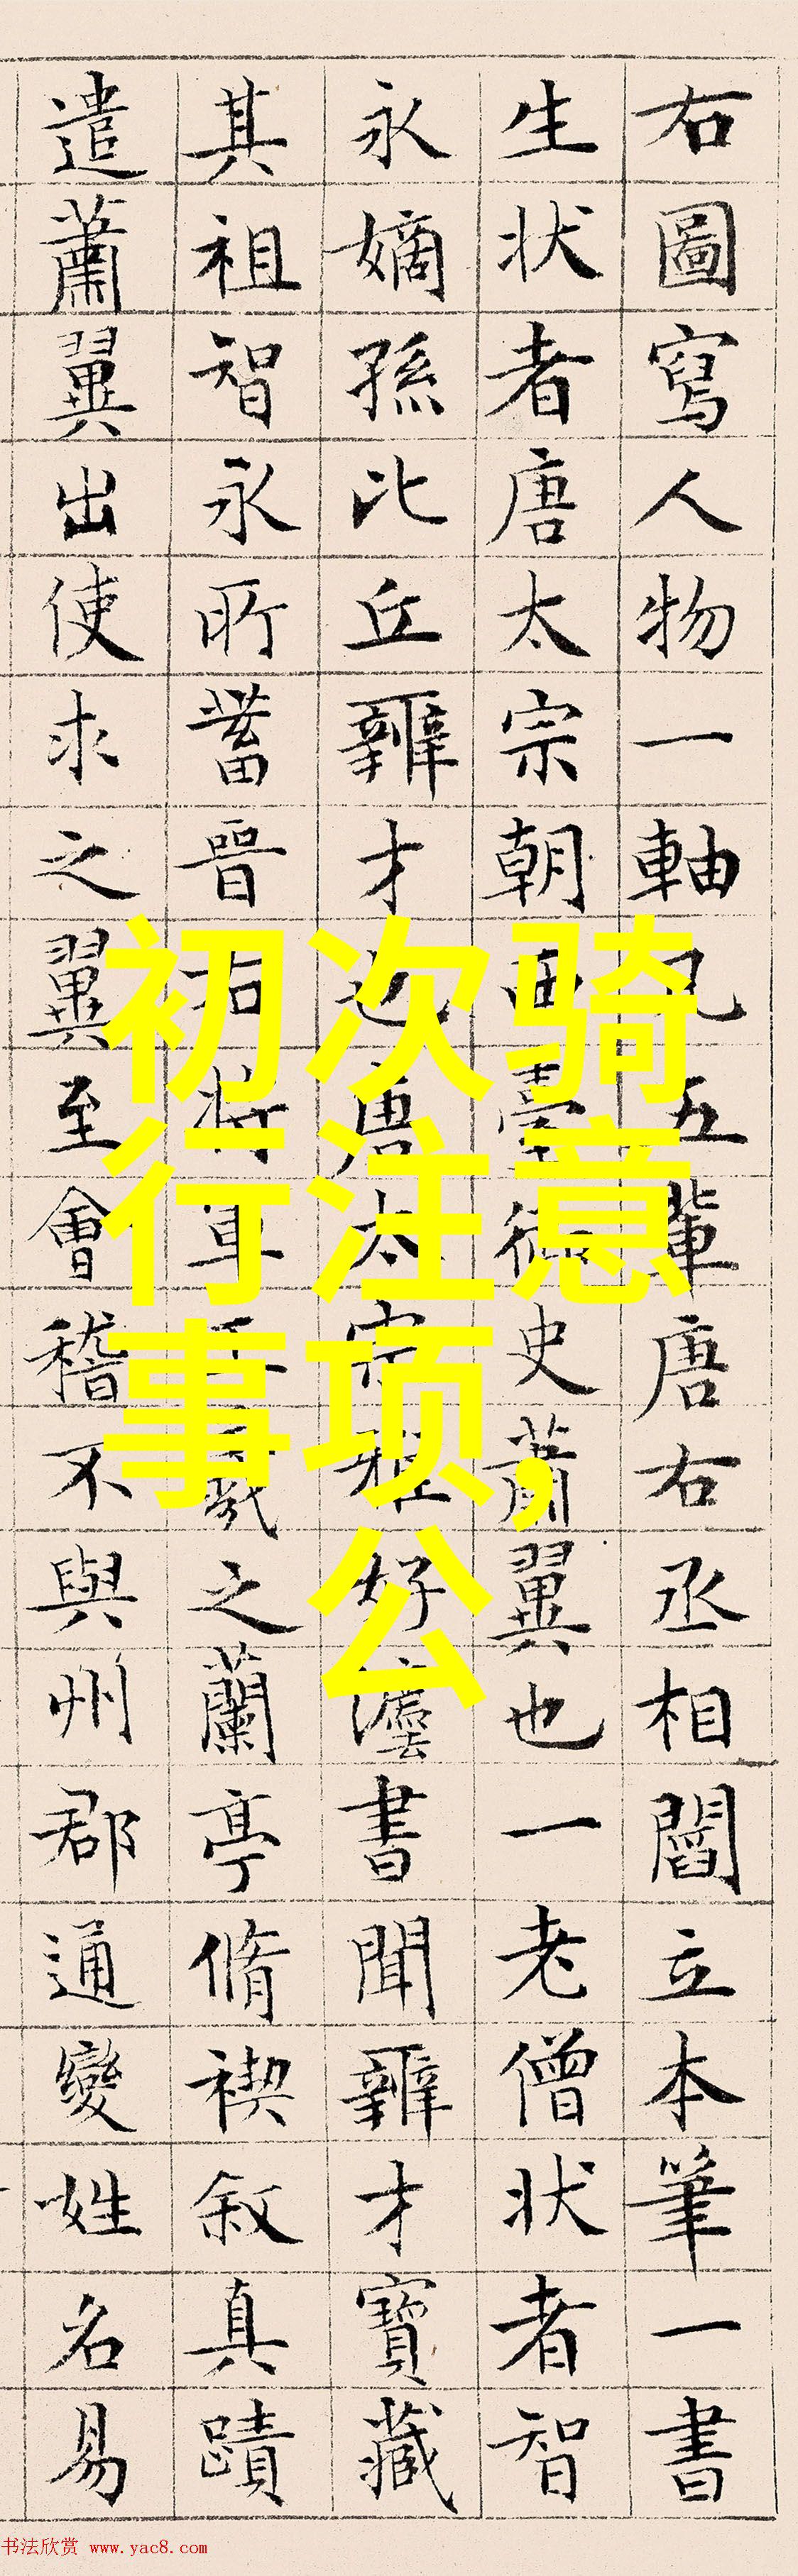 右圖寫人物一軸凡五輩唐右丞相閻立本筆一書
生状者唐太宗朝西臺御史蕭翼也一老僧状者智
永嫡孫比丘辯才也唐太宗雅好灋書聞辯才寶藏
其祖智永所蓄晉右將軍王羲之蘭亭脩禊叙真蹟
遣蕭翼出使求之翼至會稽不與州郡通變姓名易
初次骑
行注意
事项,
公
书法欣赏 www.yac8.com